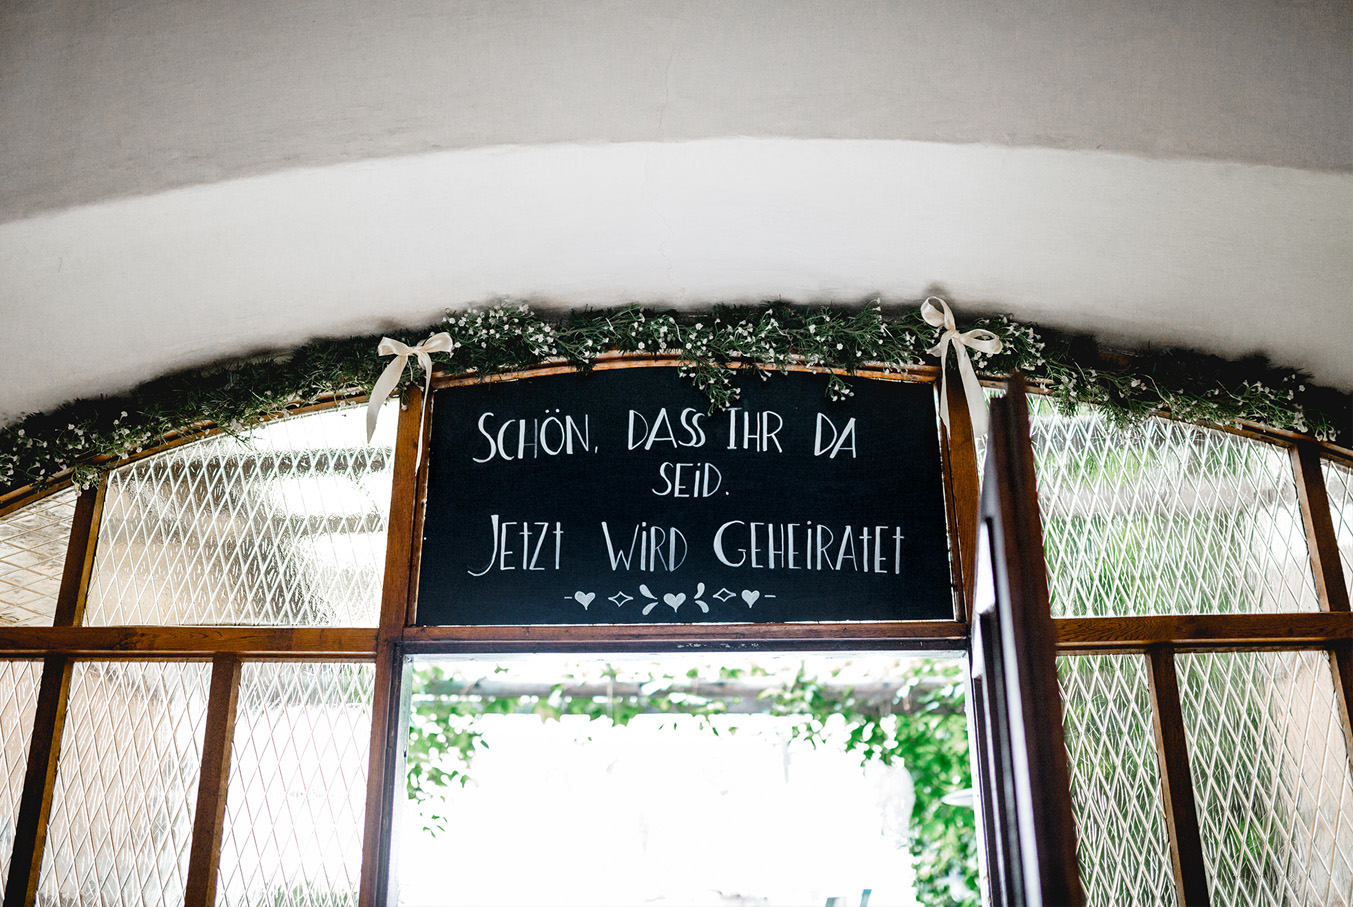 SCHÖN, DASS IHR DA
SEiD.
JEtZt WiRD GEHEiRAtEt